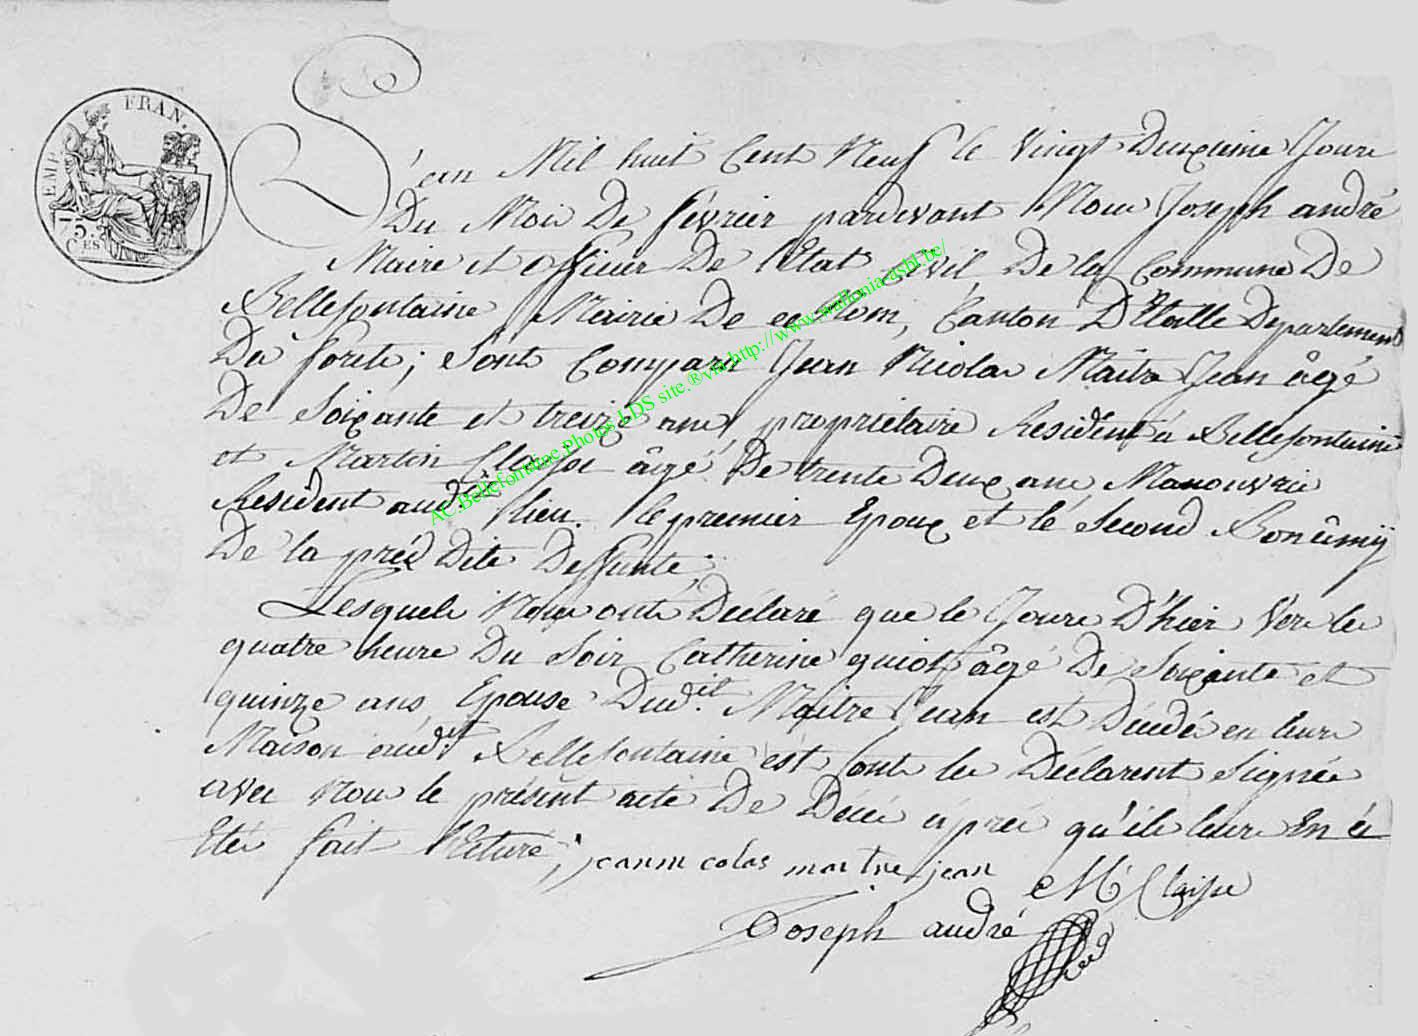 EMP. FRAN.
75.
CES
L'an Mil huit Cent Neuf le Vingt Deuxieme Jour
Du Mois De fevrier pardevant Nous Joseph andré
Maire et officier De l'Etat Civil De la Commune De
Bellefontaine Mairie De ce Nom, Canton D'Etalle Departement
Des forets; sont Comparu Jean Nicolas Maitre Jean âgé
De soixante et treize ans proprietaire Resident à Bellefontaine
et Martin Claisse âgé De trente Deux ans Manouvrie
Resident audit lieu. le premier Epoux et lé second Bon âmij
De la préd Dite Deffunte;
Lesquels Nous ont Déclaré que le Jour D'hier Vers les
quatre heure Du soir Catherine guiot âgé De soixante et
quinze ans Epouse Dudit Maitre Jean est Décédé en leur
Maison audit Bellefontaine est sont les Déclarent signée
avec Nous le présent acte De Décé aprés qu'ils leur En ci
Eté fait lecture;
jeannicolas maitre jean
M Claisse
Joseph andré
AC.Bellefontaine.Photos LDS site.®via http://www.wallonia-asbl.be/